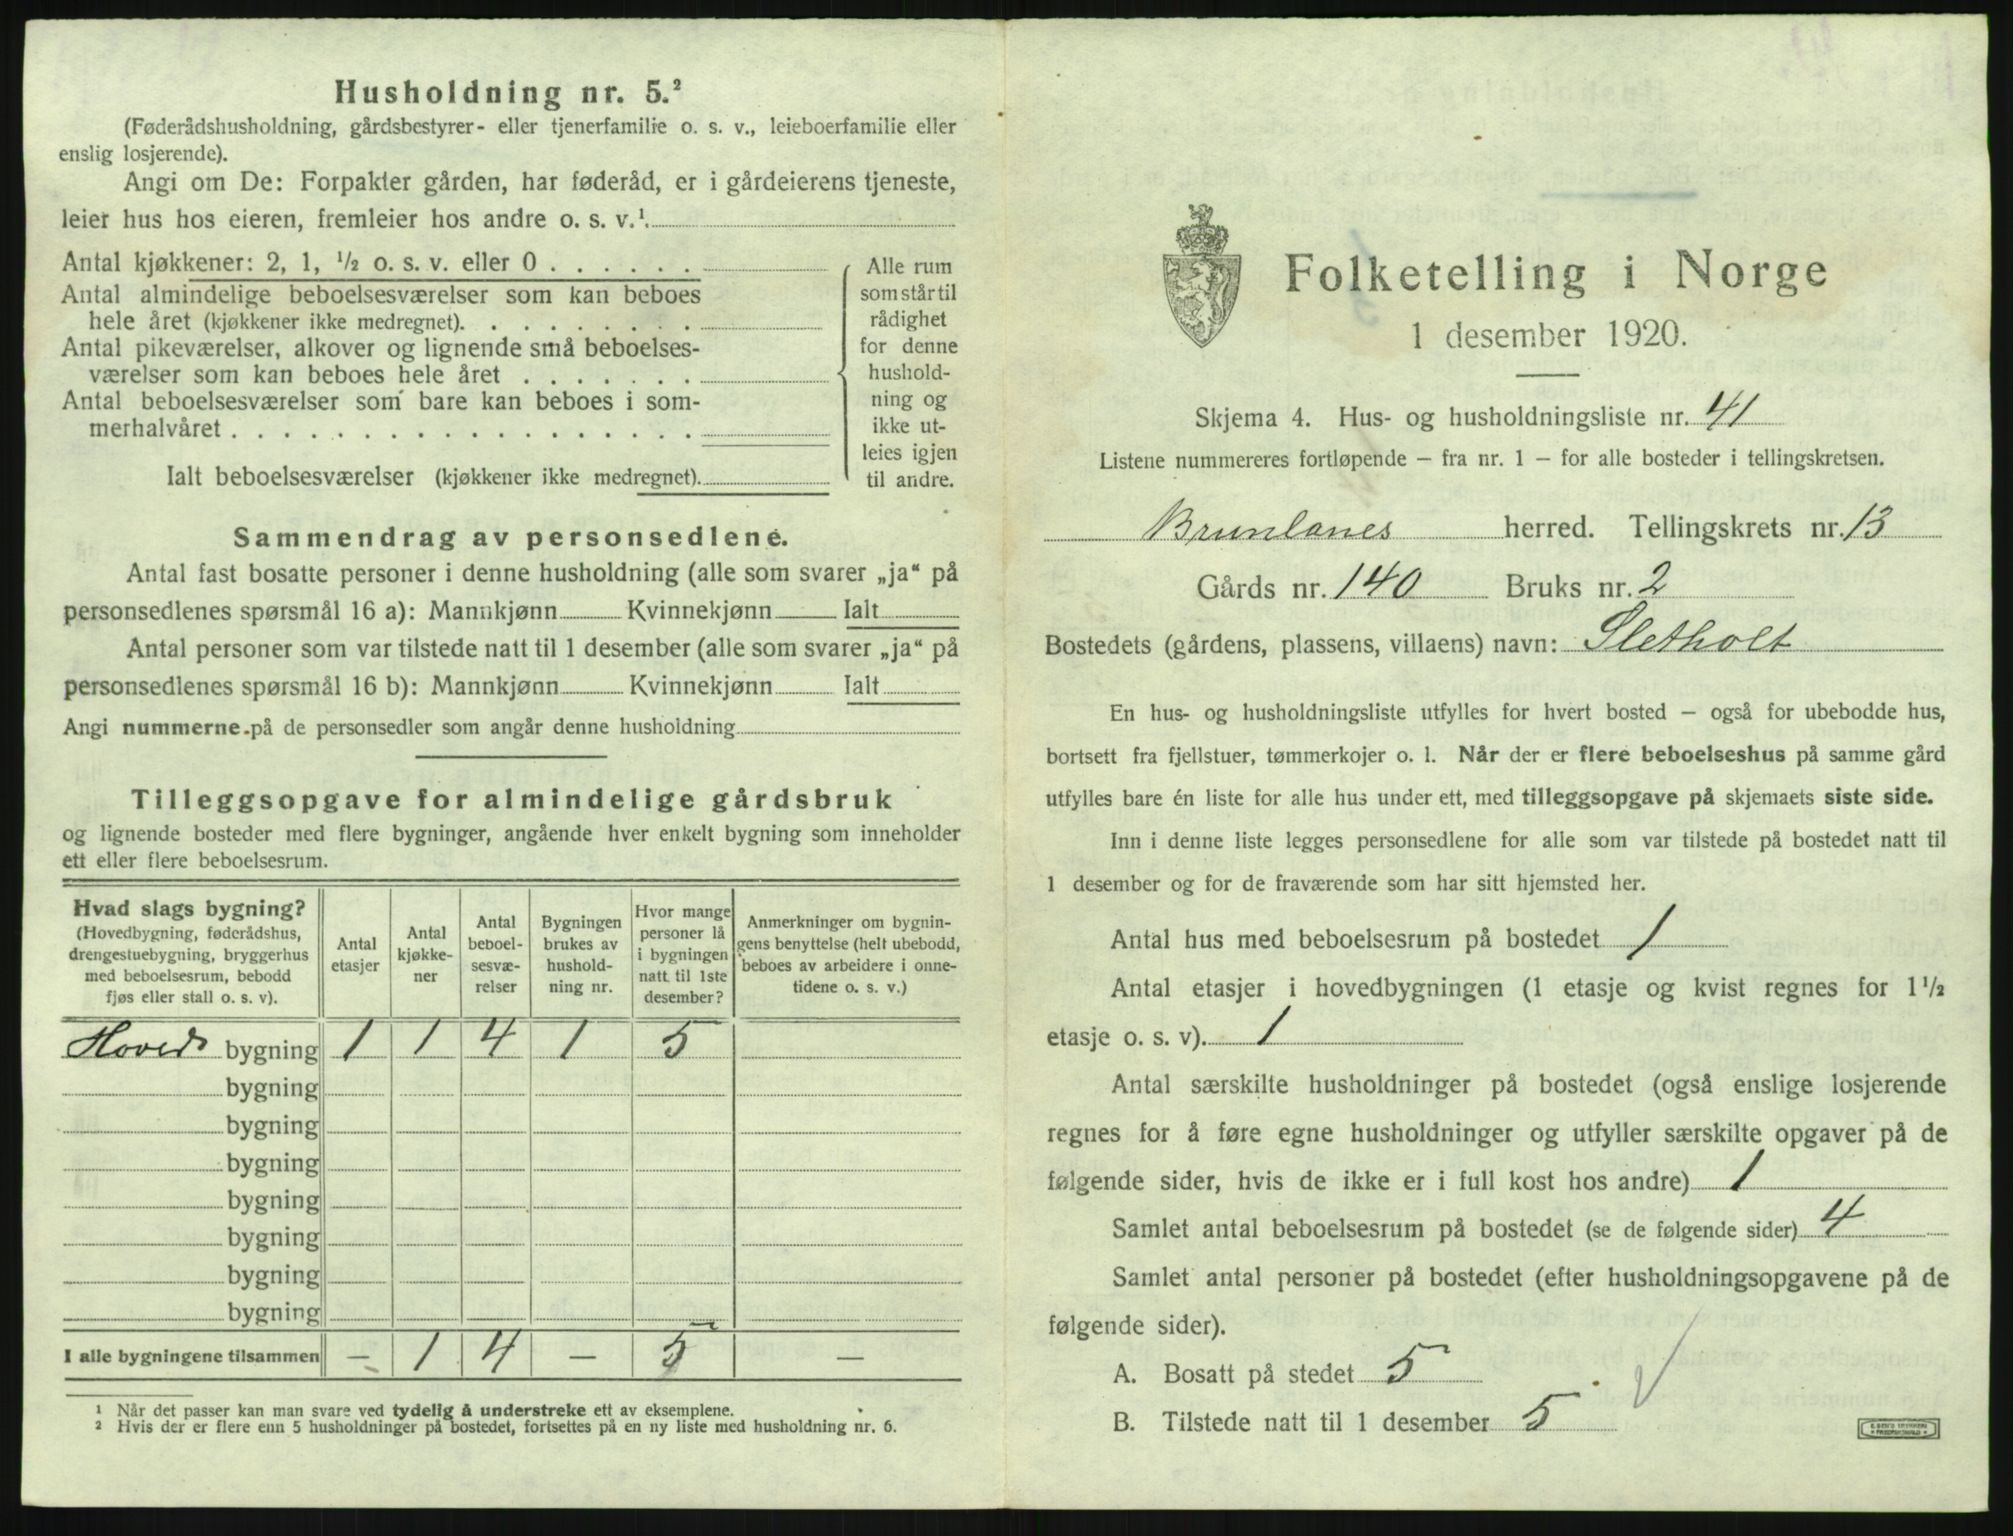 Husholdning nr. 5.²
(Føderådshusholdning, gårdsbestyrer- eller tjenerfamilie o. s. v., leieboerfamilie eller
enslig losjerende).
Angi om De: Forpakter gården, har føderåd, er i gårdeierens tjeneste,
leier hus hos eieren, fremleier hos andre o. s. v.¹.
Antal kjøkkener: 2, 1, ½ o. s. v. eller 0
Antal almindelige beboelsesværelser som kan beboes
hele året (kjøkkener ikke medregnet).
Antal pikeværelser, alkover og lignende små beboelses-
værelser som kan beboes hele året
Antal beboelsesværelser som bare kan beboes i som-
merhalvåret
Ialt beboelsesværelser (kjøkkener ikke medregnet).
Alle rum
som står til
rådighet
for denne
hushold-
ning og
ikke ut-
leies igjen
til andre.
Sammendrag av personsedlene.
Antal fast bosatte personer i denne husholdning (alle som svarer „ja“ på
personsedlenes spørsmål 16 a): Mannkjønn Kvinnekjønn Ialt
Antal personer som var tilstede natt til 1 desember (alle som svarer „ja“ på
personsedlenes spørsmål 16 b): Mannkjønn Kvinnekjønn Ialt
Angi nummerne på de personsedler som angår denne husholdning
Tilleggsopgave for almindelige gårdsbruk
og lignende bosteder med flere bygninger, angående hver enkelt bygning som inneholder
ett eller flere beboelsesrum.
Hvad slags bygning?
(Hovedbygning, føderådshus,
drengestuebygning, bryggerhus
med beboelsesrum, bebodd
fjøs eller stall o. s. v).
Antal
etasjer
Antal
kjøkke-
ner
Antal
beboel-
sesvæ-
relser
Bygningen
brukes av
hushold-
ning nr.
Hvor mange
personer lå
i bygningen
natt til 1ste
desember?
Anmerkninger om bygnin-
gens benyttelse (helt ubebodd,
beboes av arbeidere i onne-
tidene o. s. v.)
Hoveds bygning 1 1 4 1 5
bygning
bygning
bygning
bygning
bygning
bygning
bygning
I alle bygningene tilsammen — 1 4 — 5 —
¹ Når det passer kan man svare ved tydelig å understreke ett av eksemplene.
² Hvis der er flere enn 5 husholdninger på bostedet, fortsettes på en ny liste med husholdning nr. 6.
Folketelling i Norge
1 desember 1920.
Skjema 4. Hus- og husholdningsliste nr. 41
Listene nummereres fortløpende — fra nr. 1 — for alle bosteder i tellingskretsen.
Brunlanes herred. Tellingskrets nr. 13
Gårds nr. 140 Bruks nr. 2
Bostedets (gårdens, plassens, villaens) navn: Sletholt
En hus- og husholdningsliste utfylles for hvert bosted — også for ubebodde hus,
bortsett fra fjellstuer, tømmerkojer o. l. Når der er flere beboelseshus på samme gård
utfylles bare én liste for alle hus under ett, med tilleggsopgave på skjemaets siste side.
Inn i denne liste legges personsedlene for alle som var tilstede på bostedet natt til
1 desember og for de fraværende som har sitt hjemsted her.
Antal hus med beboelsesrum på bostedet 1
Antal etasjer i hovedbygningen (1 etasje og kvist regnes for 1½
etasje o. s. v). 1
Antal særskilte husholdninger på bostedet (også enslige losjerende
regnes for å føre egne husholdninger og utfyller særskilte opgaver på de
følgende sider, hvis de ikke er i full kost hos andre) 1
Samlet antal beboelsesrum på bostedet (se de følgende sider) 4
Samlet antal personer på bostedet (efter husholdningsopgavene på de
følgende sider).
A. Bosatt på stedet 5
B. Tilstede natt til 1 desember 5